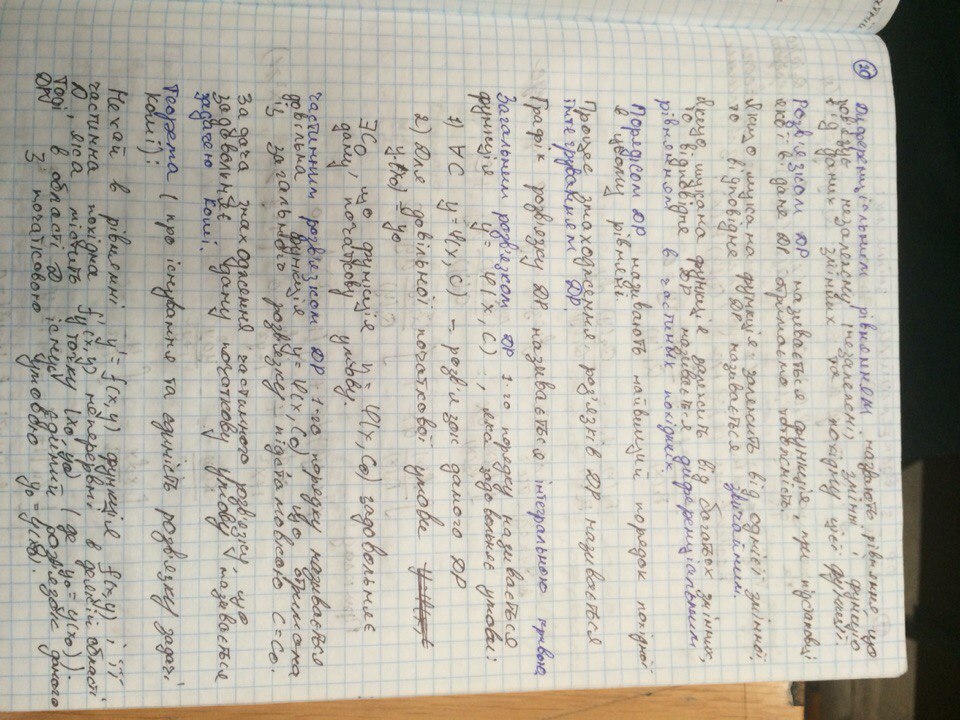 20
Диференціальним рівнянням називають рівняння що
пов'язує незалежну (незалежні) змінні і функцію
від даних змінних та похідну цієї функції.
Розв'язком ДР називається функція, при підстановці
якої в дане ДР отримаємо тотожність.
Якщо шукана функція залежить від однієї змінної,
то відповідне ДР називається звичайним.
Якщо шукана функція залежить від багатьох змінних,
то відповідне ДР називається диференціальним
рівнянням в частиних похідних.
Порядком ДР називають найвищий порядок похідної
в цьому рівняні.
Процес знаходження роз'язків ДР називається
інтегруванням ДР.
Графік розв'язку ДР називається інтегральною кривою.
Загальним розв'язком ДР 1-го порядку називається
функція y = φ(x, C) , яка задовольняє умови:
1) ∀C y = φ(x, C) – розв'язок даного ДР
2) Для довільної початкової умови
y(x₀) = y₀
∃C₀, що функція y = φ(x, C₀) задовольняє
дану початкову умову.
Частинним розв'язком ДР 1-го порядку називається
довільна функція y = φ(x, C₀) , що отримана
із загального розв'язку підстановкою C = C₀.
Задача знаходження частинного розв'язку, що
задовольняє дану початкову умову називається
задачею Коші.
Теорема (про існування та єдиність розв'язку задачі
Коші):
Нехай в рівнянні y' = f(x, y) функція f(x, y) і її
частинна похідна f'y(x, y) неперервні в деякій області
D, яка містить точку (x₀, y₀) (де y₀ = y(x₀)).
Тоді в області D існує єдиний розв'язок даного
ДР з початковою умовою y₀ = y(x₀).